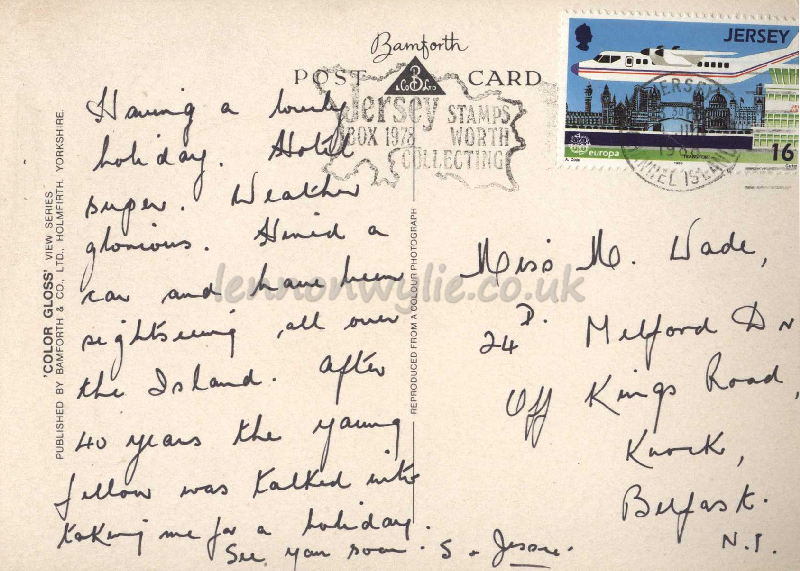 Bamforth
POST CARD
B
& Co Ltd
Jersey STAMPS
BOX 1978 WORTH
COLLECTING
JERSEY
JERSEY
CHANNEL ISLANDS
europa
TRANSPORT
16
Having a lovely
holiday. Hotel
super. Weather
glorious. Hired a
car and have been
sightseeing all over
the Island. After
40 years the young
fellow was talked into
taking me for a holiday.
See you soon. S & Jessie.
Miss M. Wade,
24D. Milford Dn
Off Kings Road,
Knock,
Belfast.
N.I.
'COLOR GLOSS' VIEW SERIES
PUBLISHED BY BAMFORTH & CO., LTD., HOLMFIRTH, YORKSHIRE.
REPRODUCED FROM A COLOUR PHOTOGRAPH
lennonwylie.co.uk